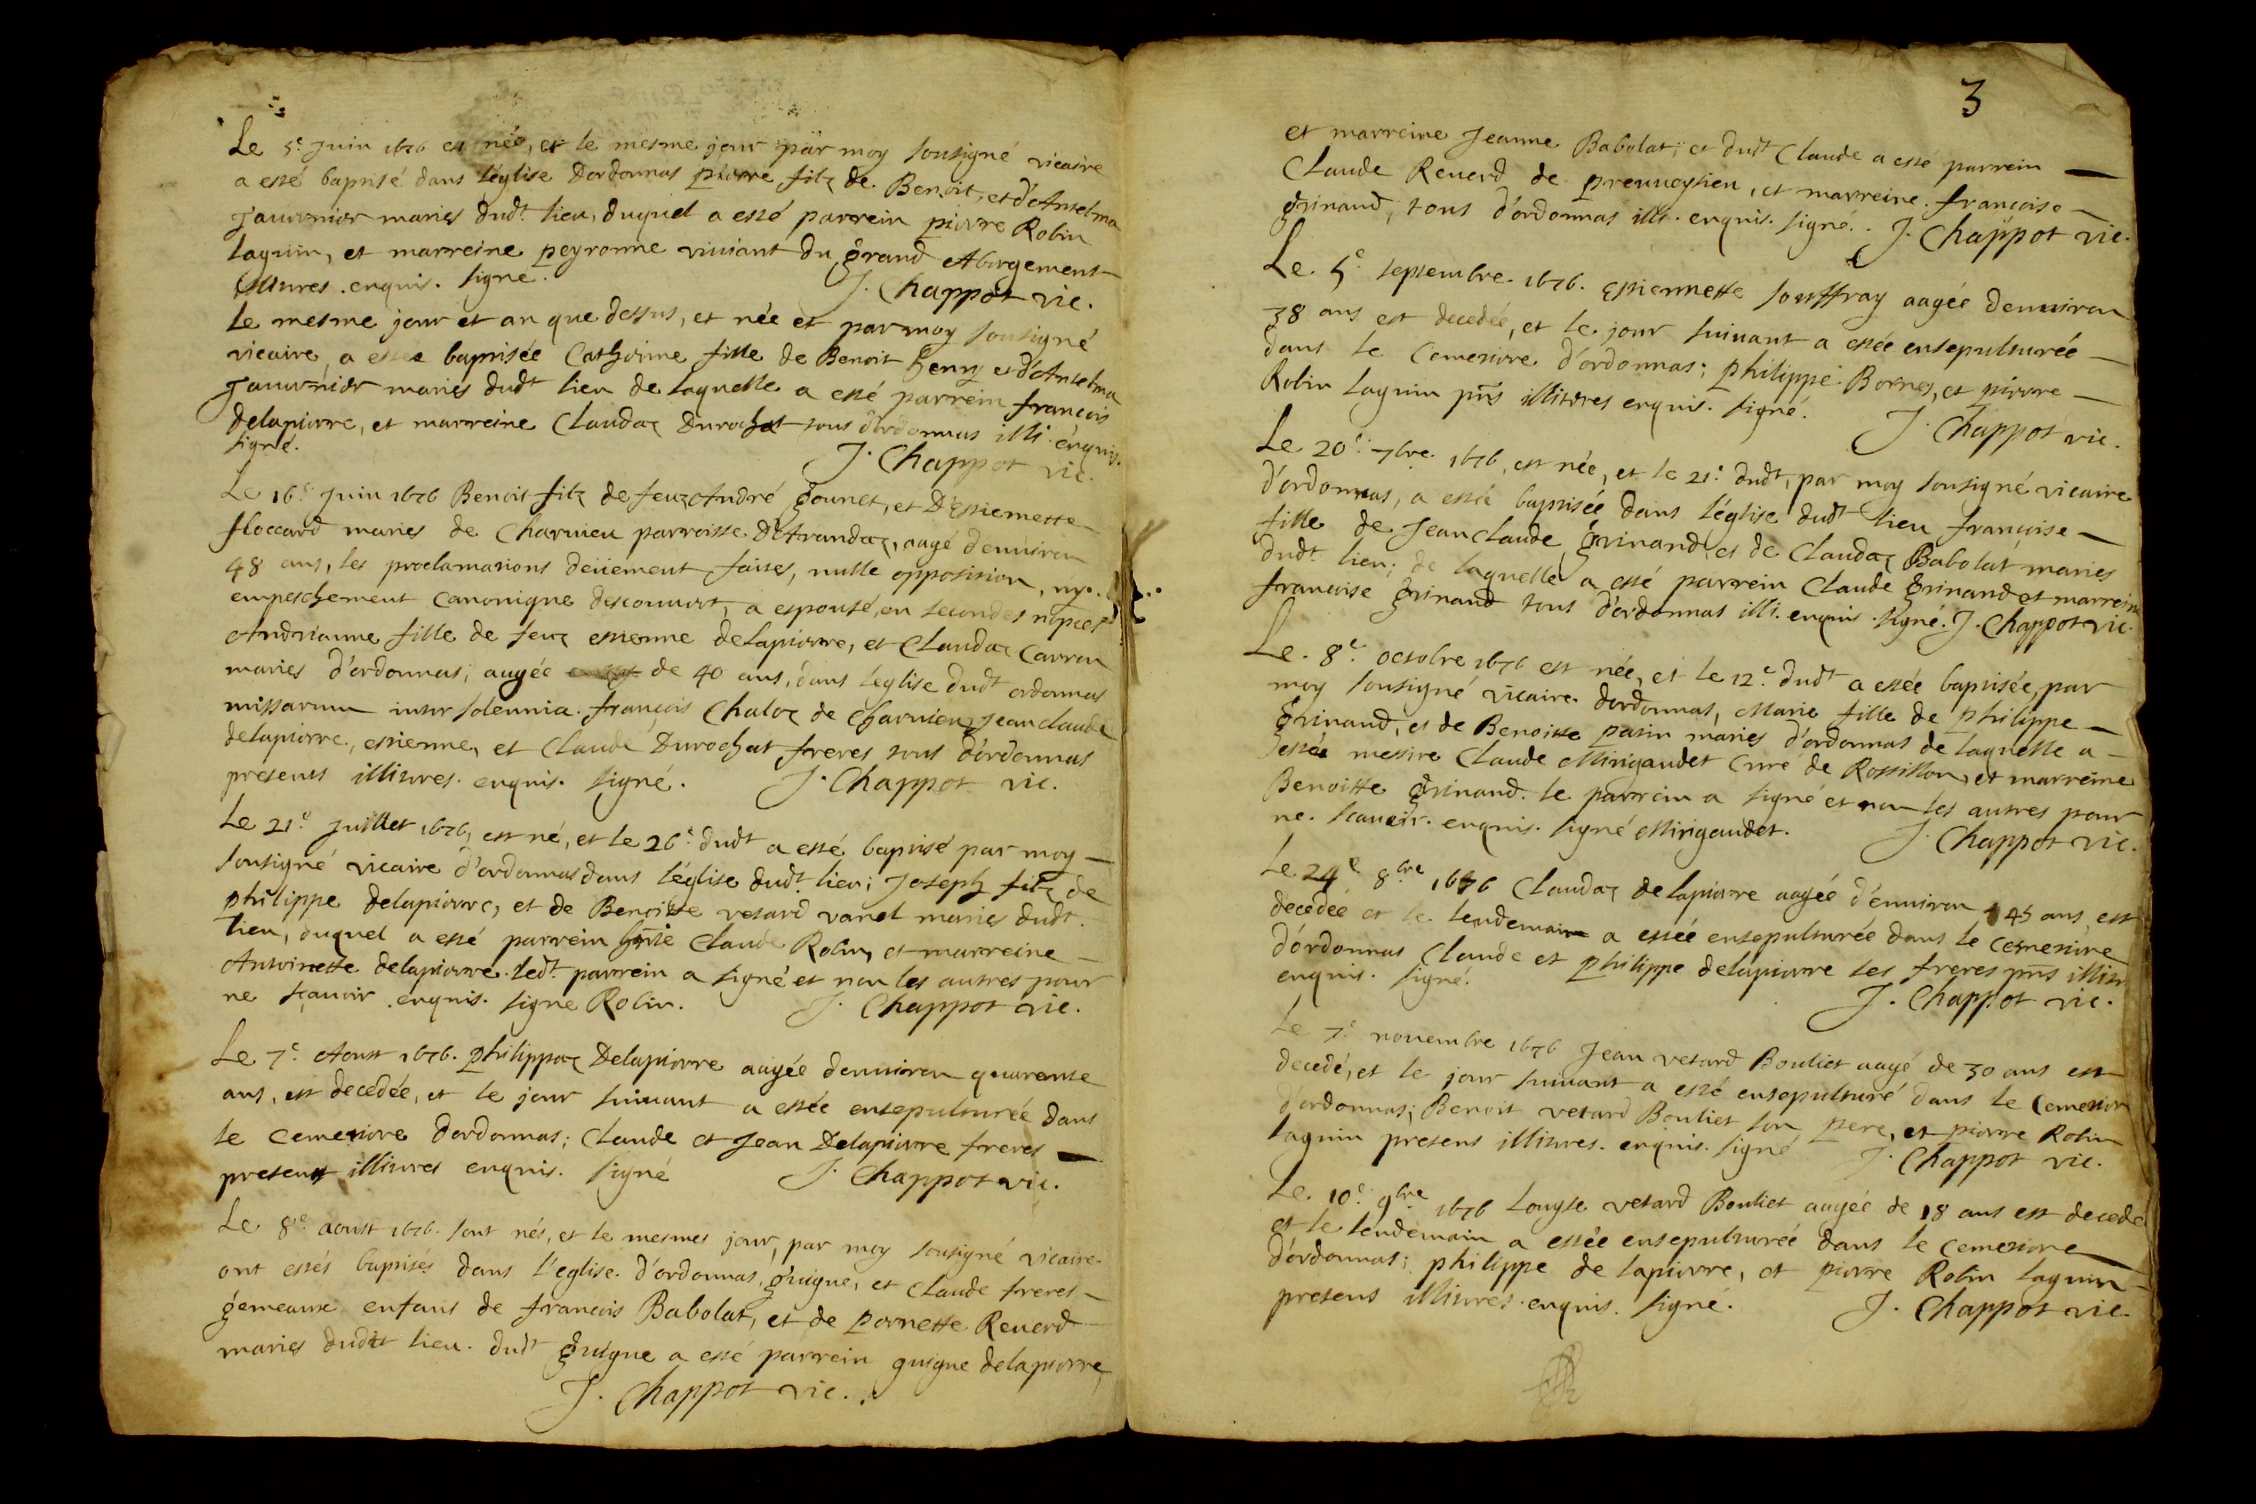 Le 5e Juin 1676 est née, et le mesme jour par moy sousigné vicaire
a esté baptisé dans l'église d'ordonnas pierre filz de Benoit, et d'Anselma
Jauvrnier mariés dudt lieu, duquel a esté parrein pierre Robin
laguin, et marreine peyronne viviant du grand Abergement
illitures enquis. signé. J. Chappot vic.
Le mesme jour et an que dessus, et née et par moy sousigné
vicaire, a estée baptisée Catherine fille de Benoit henry et d'Anselma
Jauvrnier mariés dudt lieu de laquelle a esté parrein françois
delapierre, et marreine Claudaz Durochat tous d'ordonnas illi. enquis.
signé. J. Chappot vic.
Le 16e Juin 1676 Benoit filz de feuz André gounet, et D'Estiennette
floccard mariés de Charvieu parroisse D'Arandaz, aagé d'environ
48 ans, les proclamations deüement faites, nulle opposition, ny
empeschement canonique descouvert, a espousé, en secondes nopces
Andrianne fille de feuz estienne delapierre, et Claudaz Carron
mariés d'ordonnas; aagée de 40 ans, dans l'église dudt ordonnas
missarum inter solennia. françois Chaloz de Charvieu, Jeanclaude
delapierre, estienne, et Claude Durochat freres tous d'ordonnas
presents illitures. enquis. signé. J. Chappot vic.
Le 21e Juillet 1676, est né, et le 26e dudt a esté baptisé par moy
sousigné vicaire d'ordonnas dans l'église dudt lieu; Joseph filz de
philippe delapierre, et de Benoitte vetard varel mariés dudt.
lieu, duquel a esté parrein Claude Robin, et marreine
Antoinette delapierre. ledt. parrein a signé et non les autres pour
ne sçavoir enquis. signe Robin. J. Chappot vic.
Le 7e Aoust 1676. philippaz Delapierre aagée denviron quarente
ans, est decedée, et le jour suivant a estée ensepulturée dans
le cemetiere dordonnas; Claude et Jean Delapierre freres
presents illitures enquis. signé J. Chappot vic.
Le 8e aoust 1676. sont nés, et le mesmes jour, par moy sousigné vicaire
ont estés baptisés dans l'eglise d'ordonnas, guigue, et Claude freres
gemeaux enfans de françois Babolat, et de pernette Reverd
mariés dudit lieu. dudt guigue a esté parrein guigue delapierre,
J. Chappot vic.
3
et marreine Jeanne Babolat; et dudt Claude a esté parrein
Claude Reverd de premeysieu, et marreine françoise
grinand, tous d'ordonnas illi. enquis. signé. J. Chappot vic.
Le 5e septembre 1676. estiennette souffray aagée denviron
38 ans est decedée, et le jour suivant a estée ensepulturée
dans le cemetiere d'ordonnas; philippe Bornes, et pierre
Robin laguin pnts illitires enquis. signé. J. Chappot vic.
Le 20e 7bre 1676, est née, et le 21e dudt, par moy sousigné vicaire
d'ordonnas, a estée baptisée dans l'église dudt lieu françoise
fille de Jeanclaude grinand, et de Claudaz Babolat mariés
dudt lieu; de laquelle a esté parrein Claude grinand et marreine
françoise grinand tous d'ordonnas illi. enquis. signé. J. Chappot vic.
Le 8e octobre 1676 est née, et le 12e dudt a estée baptisée, par
moy sousigné vicaire dordonnas, Marie fille de philippe
grinand, et de Benoitte patin mariés d'ordonnas de laquelle a
estée messire Claude Mirigaudet curé de Rossillon, et marreine
Benoitte grinand. le parrein a signé et non les autres pour
ne scavoir. enquis. signé Mirigaudet. J. Chappot vic.
Le 24e 8bre 1676 Claudaz delapierre aagée d'environ 45 ans, est
decedée et le lendemain a estée ensepulturée dans le cemetiere
d'ordonnas Claude et philippe delapierre ses freres pnts illitu
enquis. signé. J. Chappot vic.
Le 7e novembre 1676 Jean vetard Bouliet aagé de 30 ans est
decedé, et le jour suivant a esté ensepulturé dans le Cemetier
dordonnas; Benoit vetard Bouliet son pere, et pierre Robin
laguin presens illitures. enquis. signé J. Chappot vic.
Le 10e 9bre 1676 Louyse vetard Bouliet aagée de 18 ans est decedé
et le lendemain a estée ensepulturée dans le cemetiere
d'ordonnas; philippe de lapierre, et pierre Robin laguin
presens illitures. enquis. signé. J. Chappot vic.